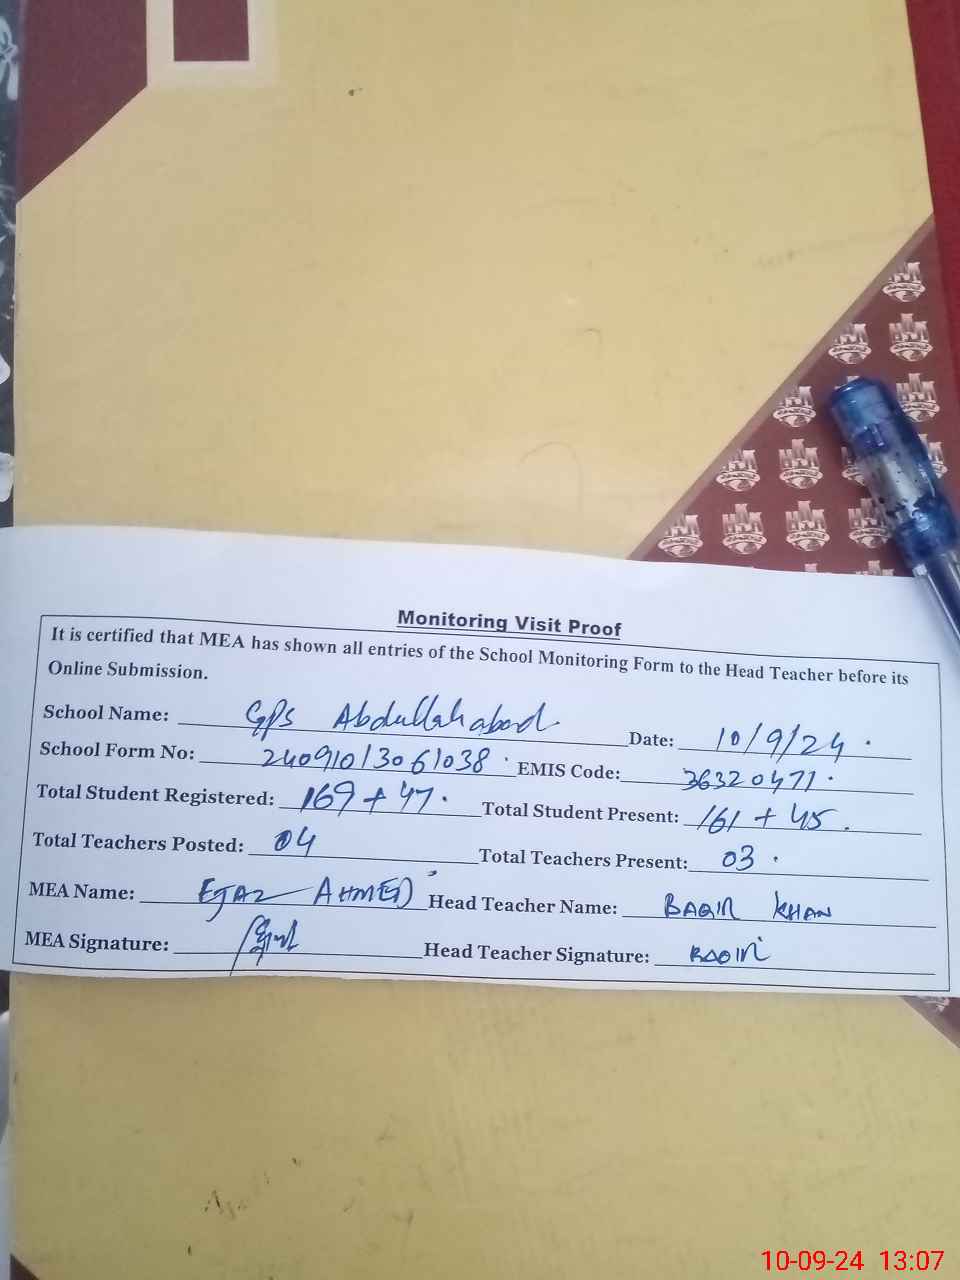 Monitoring Visit Proof
It is certified that MEA has shown all entries of the School Monitoring Form to the Head Teacher before its
Online Submission.
School Name: GPS Abdullahabad Date: 10/9/24
School Form No: 24091013061038 EMIS Code: 36320471
Total Student Registered: 169 + 47 Total Student Present: 161 + 45
Total Teachers Posted: 04 Total Teachers Present: 03
MEA Name: EJAZ AHMED Head Teacher Name: BAQIR KHAN
MEA Signature: Head Teacher Signature: BAQIR
10-09-24 13:07